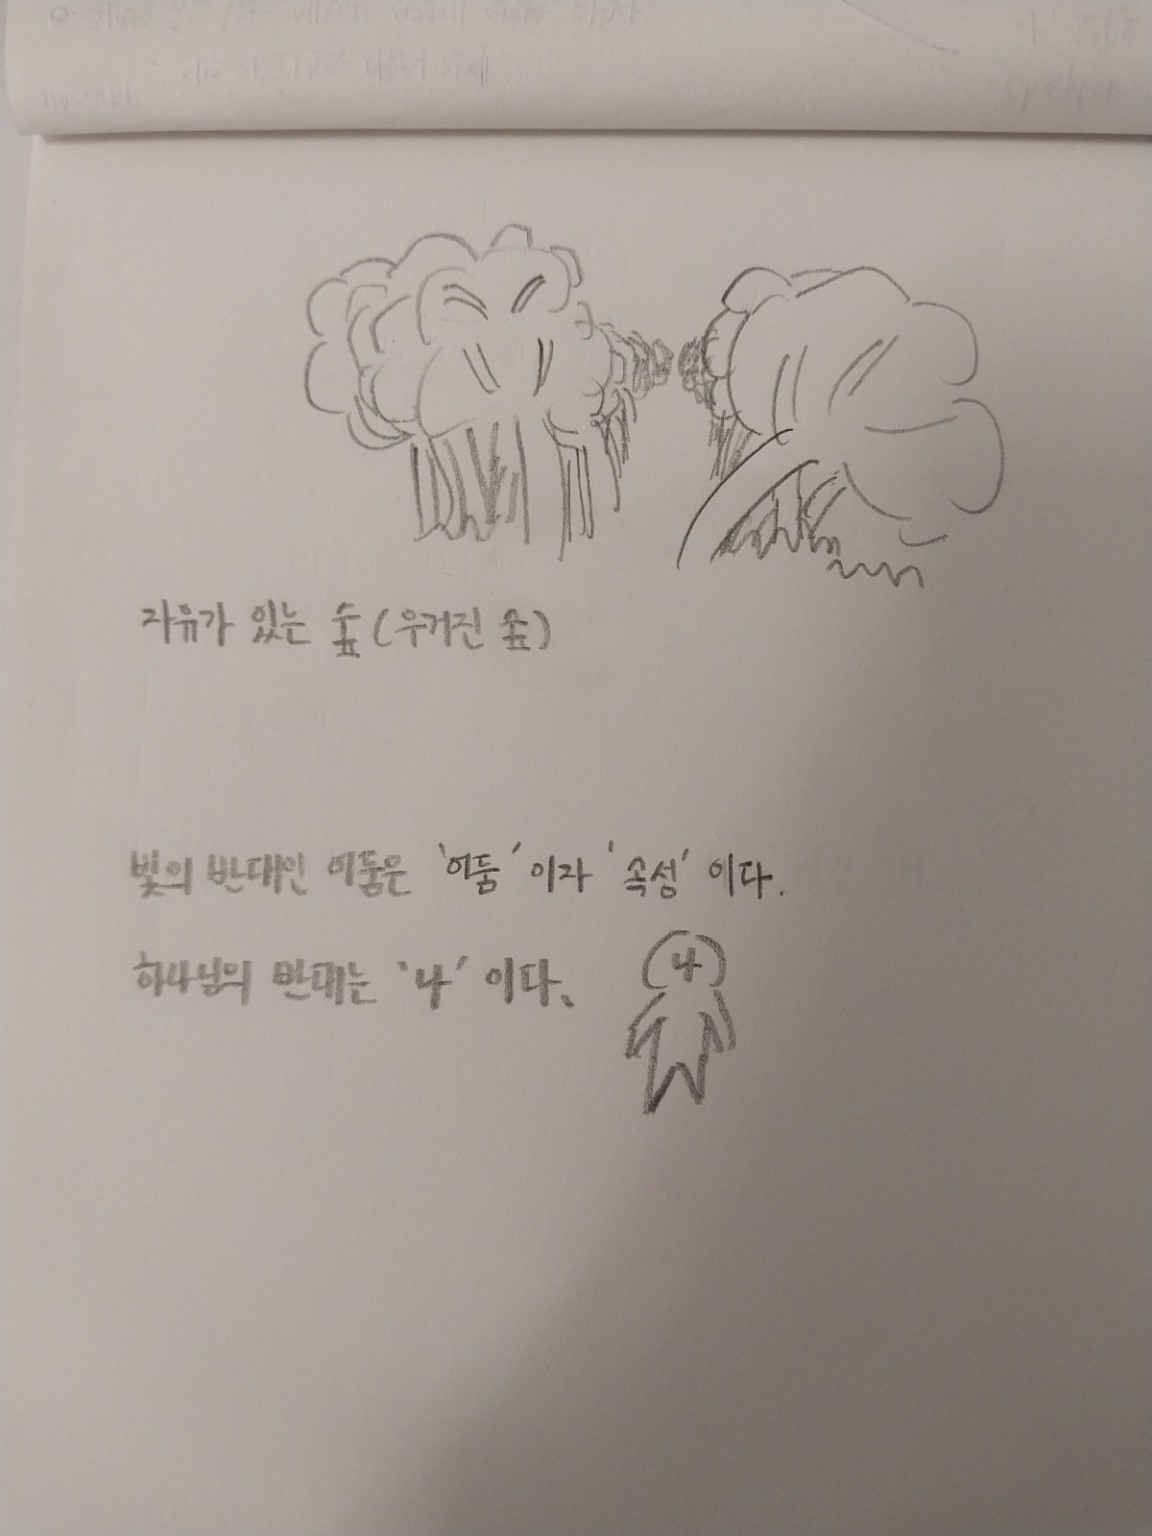 자유가 있는 숲 (우거진 숲)
빛의 반대인 어둠은 '어둠' 이자 '속성' 이다.
하나님의 반대는 '나' 이다.
나